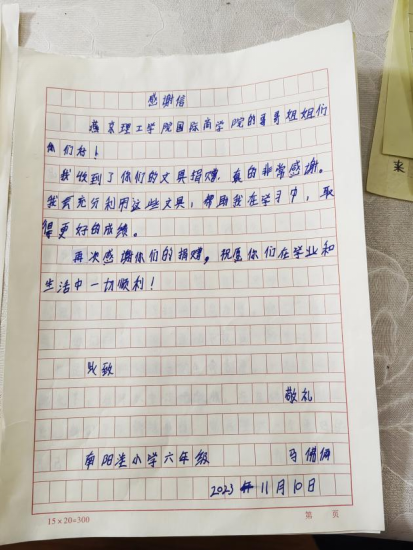 感谢信
燕京理工学院国际商学院的哥哥姐姐们
你们好！
我收到了你们的文具捐赠，真的非常感谢。
我会充分利用这些文具，帮助我在学习中，取
得更好的成绩。
再次感谢你们的捐赠，祝愿你们在学业和
生活中一切顺利！
此致
敬礼
阳洼小学六年级 马
2023年11月10日
15×20=300 第 页
来